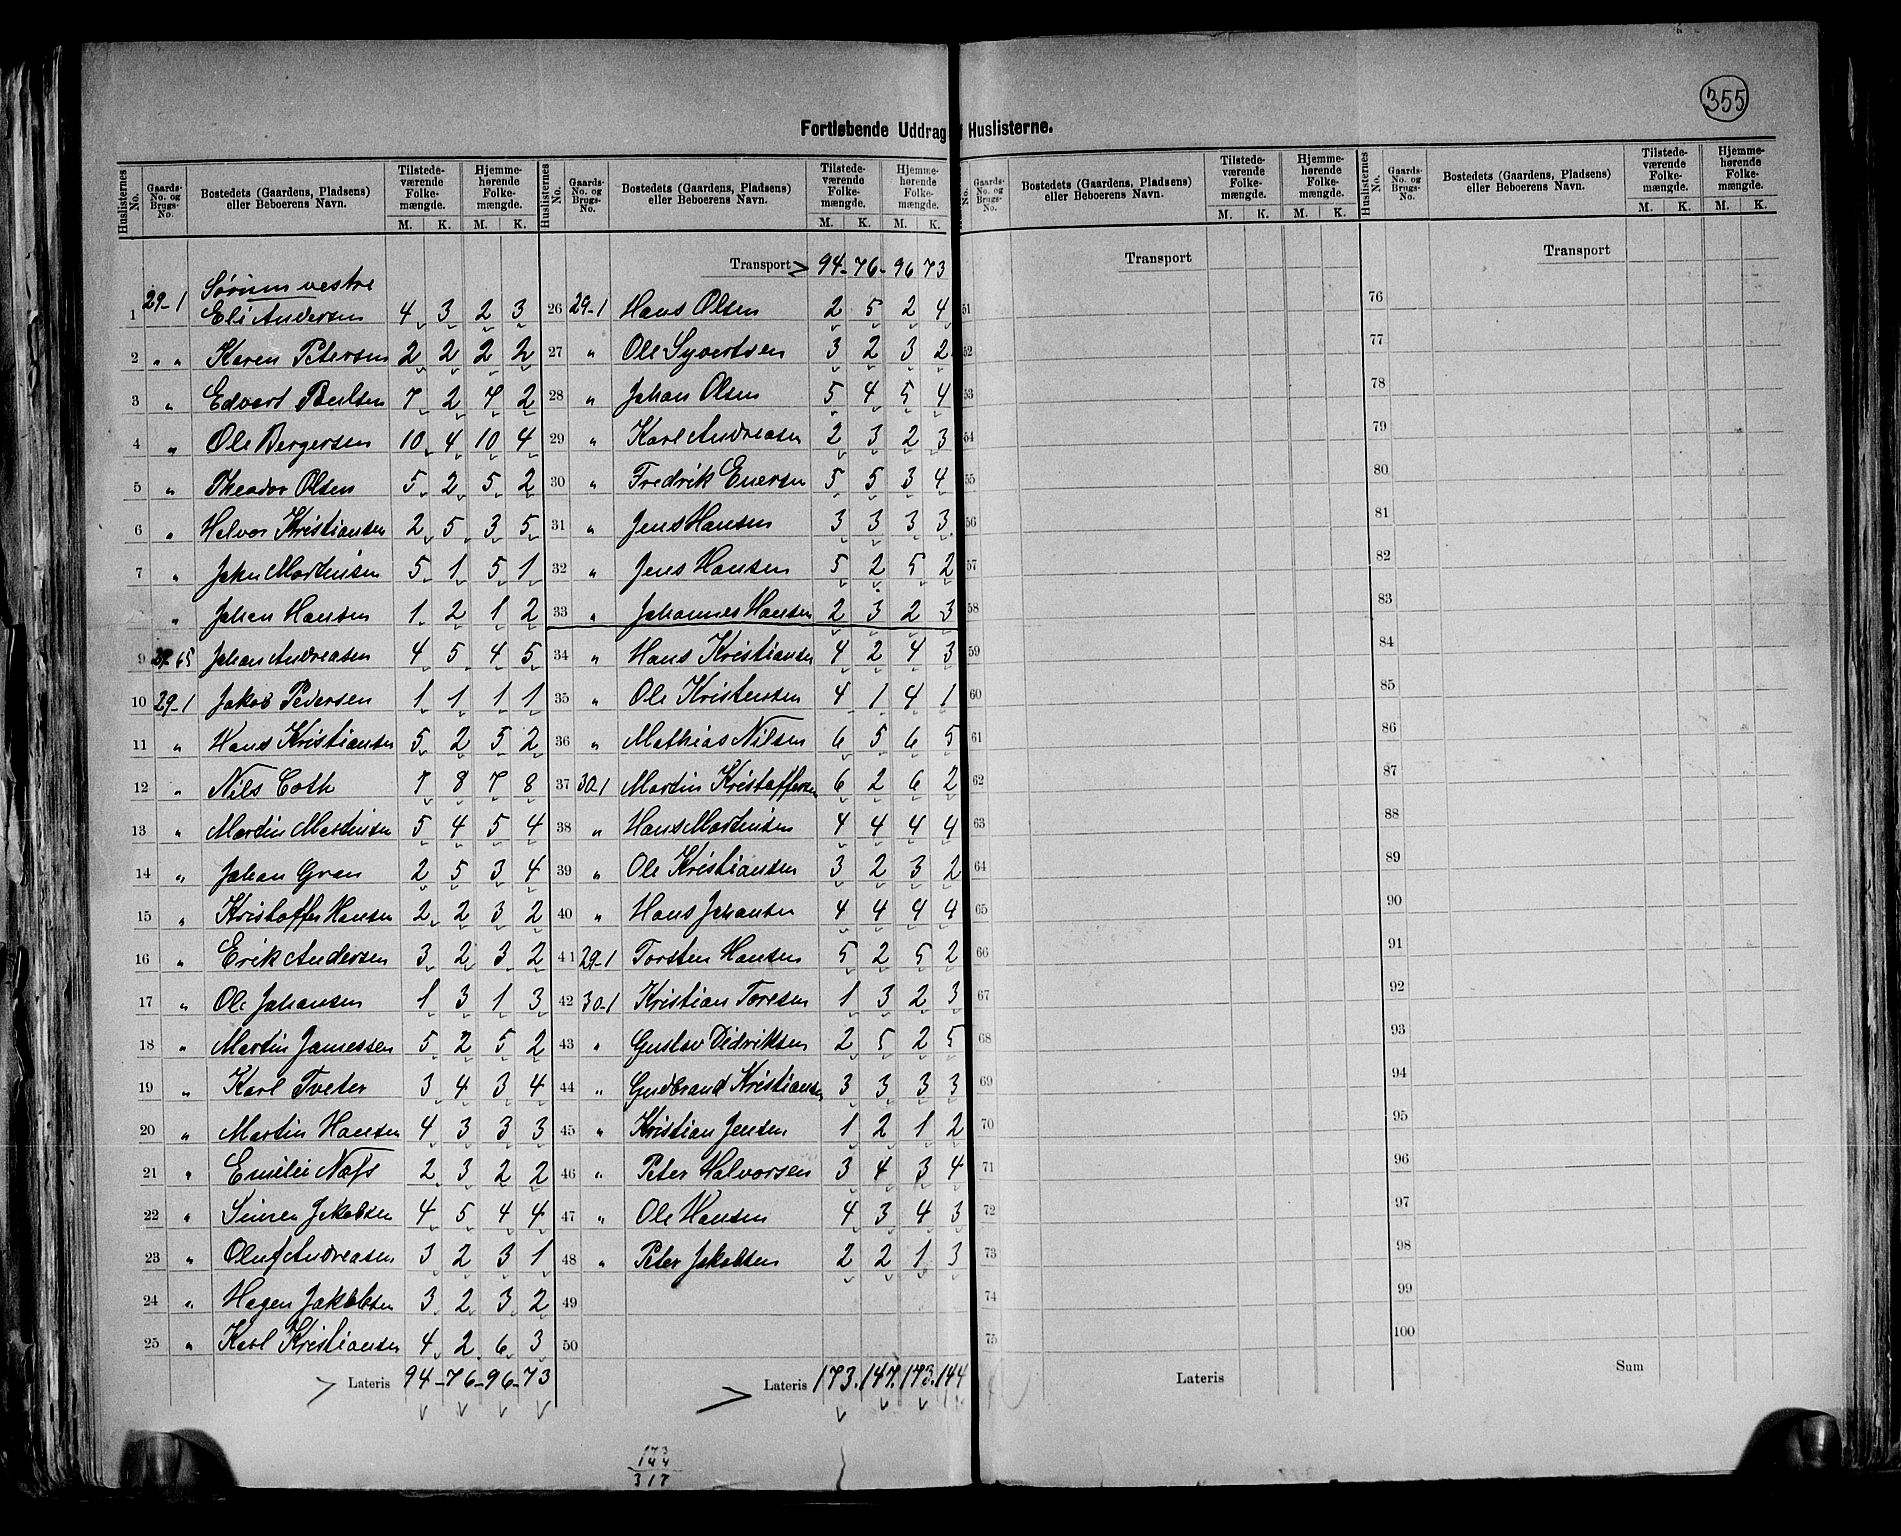 355
Fortløbende Uddrag f Huslisterne.
Huslisternes No. | Gaards-No. og Brugs-No. | Bostedets (Gaardens, Pladsens) eller Beboerens Navn. | Tilstedeværende Folkemængde. M. K. | Hjemmehørende Folkemængde. M. K.
Sørum vestre
1 29-1 Eli Andersen 4 3 2 3
2 " " Karen Petersen 2 2 2 2
3 " Edvart Paulsen 7 2 7 2
4 " Ole Bergersen 10 4 10 4
5 " Theodor Olsen 5 2 5 2
6 " Halvor Kristiansen 2 5 3 5
7 " John Martinsen 5 1 5 1
" Johan Hansen 1 2 1 2
9 29 65 Johan Andreasen 4 5 4 5
10 29-1 Jakob Pedersen 1 1 1 1
11 " Hans Kristiansen 5 2 5 2
12 " Nils Coth 7 8 7 8
13 " Martin Martinsen 5 4 5 4
14 " Johan Gran 2 5 3 4
15 " Kristoffer Hansen 2 2 3 2
16 " Erik Andersen 3 2 3 2
17 " Ole Johansen 1 3 1 3
18 " Martin Jamessen 5 2 5 2
19 " Karl Tveter 3 4 3 4
20 " Martin Hansen 4 3 3 3
21 " Emilie Næss 2 3 2 2
22 " Simen Jakobsen 4 5 4 4
23 " Oluf Andreasen 3 2 3 1
24 " Hagen Jakobsen 3 2 3 2
25 " Karl Kristiansen 4 2 6 3
Lateris 94-76-96-73
Huslisternes No. | Gaards-No. og Brugs-No. | Bostedets (Gaardens, Pladsens) eller Beboerens Navn. | Tilstedeværende Folkemængde. M. K. | Hjemmehørende Folkemængde. M. K.
Transport 94-76-96 73
26 29-1 Hans Olsen 2 5 2 4
27 " Ole Syvertsen 3 2 3 2
28 " Johan Olsen 5 4 5 4
29 " Karl Andreasen 2 3 2 3
30 " Fredrik Enersen 5 5 3 4
31 " Jens Hansen 3 3 3 3
32 " Jens Hansen 5 2 5 2
33 " Johannes Hansen 2 3 2 3
34 " Hans Kristiansen 4 2 4 3
35 " Ole Kristensen 4 1 4 1
36 " Mathias Nilsen 6 5 6 5
37 30-1 Martin Kristoffersen 6 2 6 2
38 " Hans Martinsen 4 4 4 4
39 " Ole Kristiansen 3 2 3 2
40 " Hans Johansen 4 4 4 4
41 29-1 Torsten Hansen 5 2 5 2
42 30-1 Kristian Toresen 1 3 2 3
43 " Gustav Didriksen 2 5 2 5
44 " Gudbrand Kristiansen 3 3 3 3
45 " Kristian Jensen 1 2 1 2
46 " Peter Halvorsen 3 4 3 4
47 " Ole Hansen 4 3 4 3
48 " Peter Jakobsen 2 2 1 3
49
50
Lateris 173. 147. 173. 144
173
144
317
No. | Gaards-No. og Brugs-No. | Bostedets (Gaardens, Pladsens) eller Beboerens Navn. | Tilstedeværende Folkemængde. M. K. | Hjemmehørende Folkemængde. M. K.
Transport
51
52
53
54
55
56
57
58
59
60
61
62
63
64
65
66
67
68
69
70
71
72
73
74
75
Lateris
Huslisternes No. | Gaards-No. og Brugs-No. | Bostedets (Gaardens, Pladsens) eller Beboerens Navn. | Tilstedeværende Folkemængde. M. K. | Hjemmehørende Folkemængde. M. K.
Transport
76
77
78
79
80
81
82
83
84
85
86
87
88
89
90
91
92
93
94
95
96
97
98
99
100
Sum